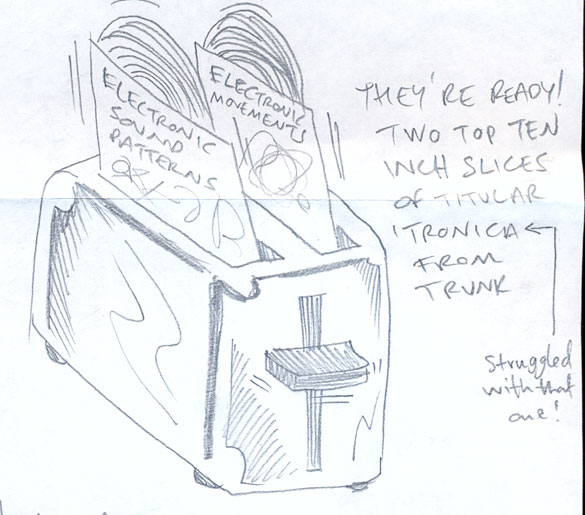 ELECTRONIC
SOUND
PATTERNS
ELECTRONIC
MOVEMENTS
THEY'RE READY!
TWO TOP TEN
INCH SLICES
OF TITULAR
'TRONICA
FROM
TRUNK
Struggled
with that
one!